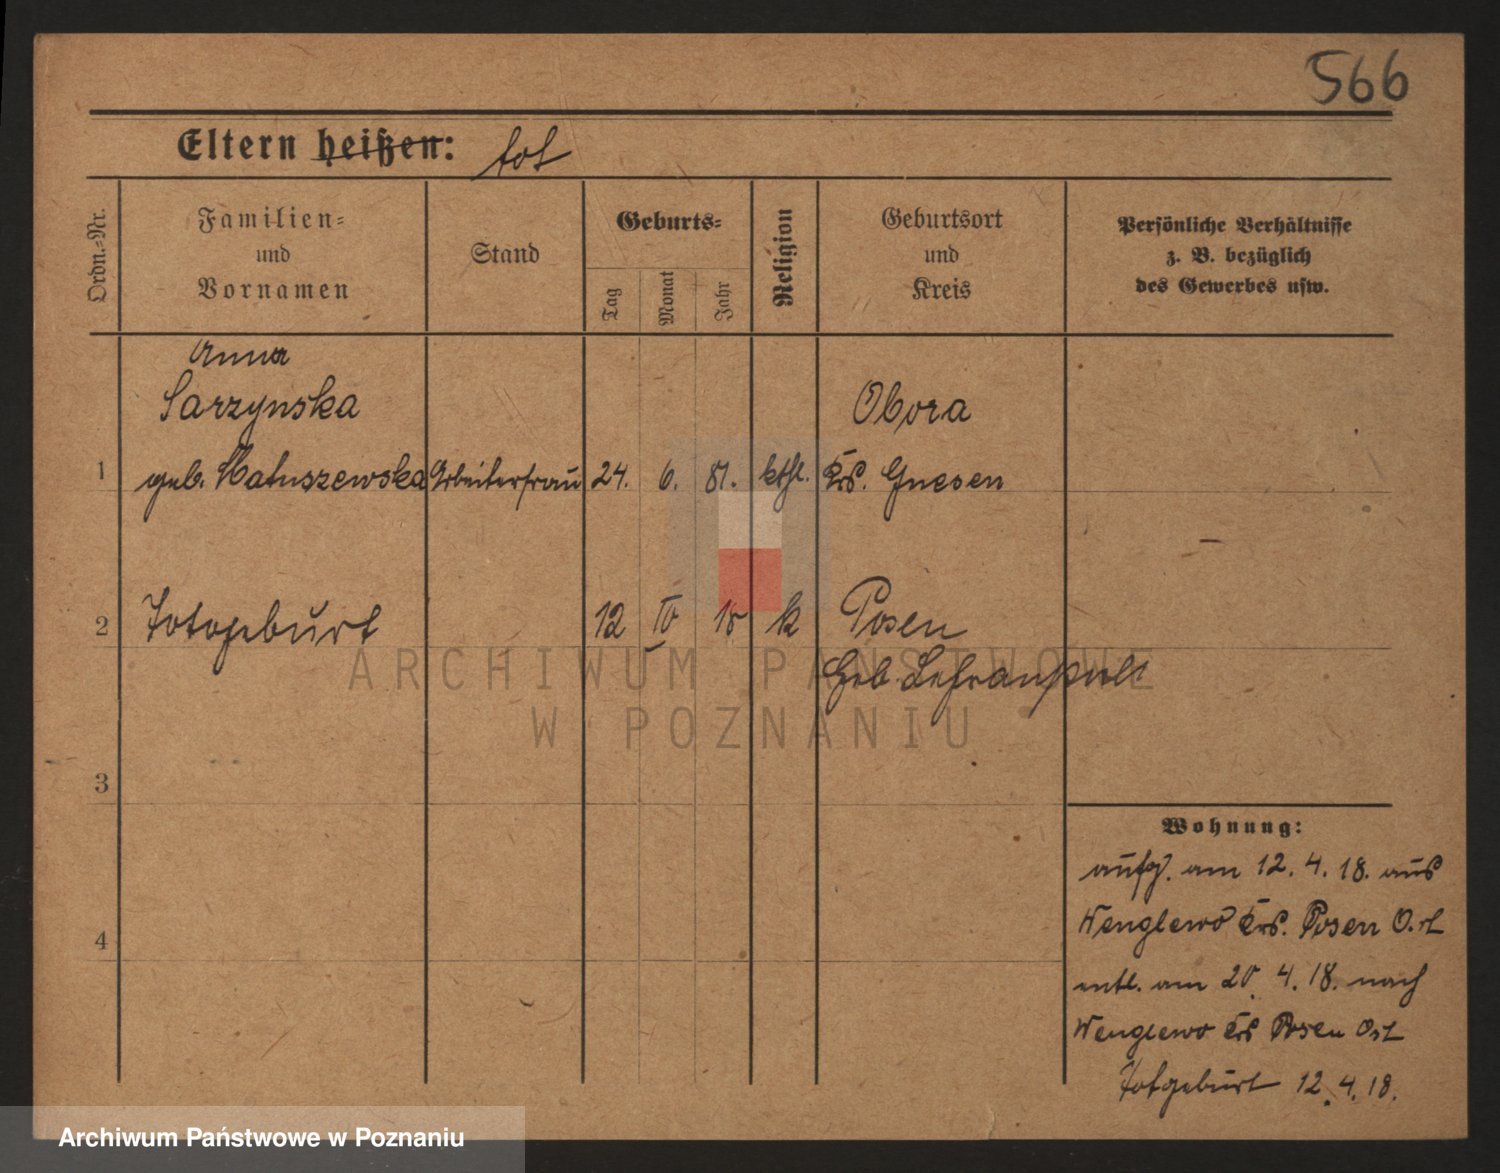 566
Eltern heißen: tot
Ordn.-Nr.
Familien-
und
Vornamen
Stand
Geburts-
Tag
Monat
Jahr
Religion
Geburtsort
und
Kreis
Persönliche Verhältnisse
z. B. bezüglich
des Gewerbes usw.
Anna
Sarzynska
Obora
1 geb. Matuszewska Arbeiterfrau 24. 6. 81. kthl. Krs. Gnesen
2 Totgeburt 12 IV 18 k Posen
Geb.
3
4
Wohnung:
aufg. am 12. 4. 18. aus
Wenglewo Krs. Posen Ost
entl. am 20. 4. 18. nach
Wenglewo Krs Posen Ost
Totgeburt 12. 4. 18.
ARCHIWUM PAŃSTWOWE
W POZNANIU
Archiwum Państwowe w Poznaniu